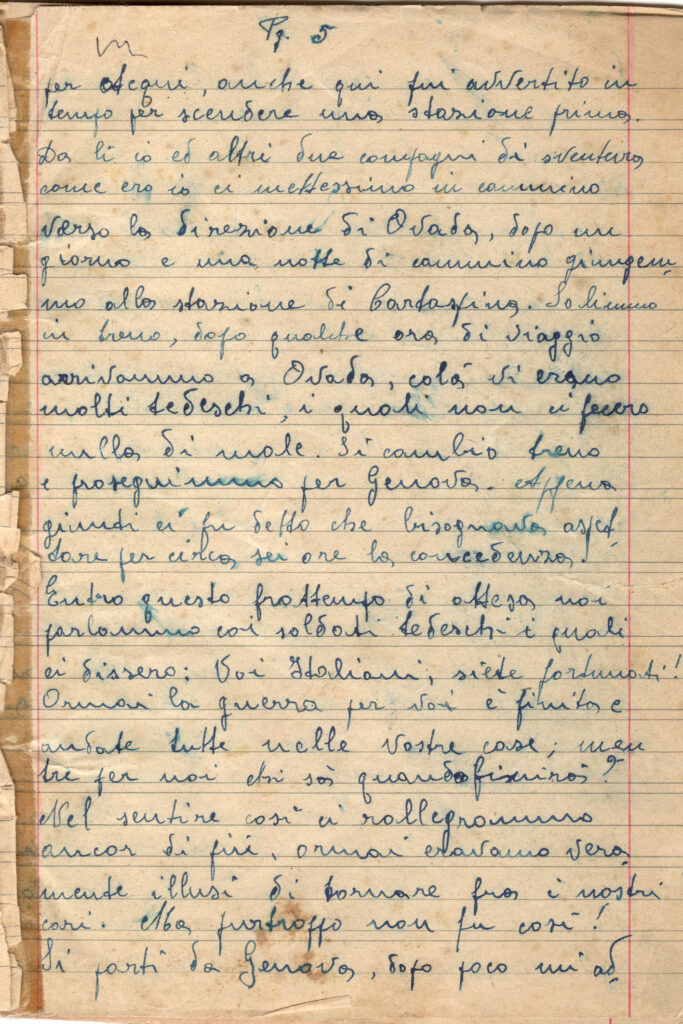 Pg. 5
per Acqui, anche qui fui avvertito in
tempo per scendere una stazione prima.
Da lì io ed altri due compagni di sventura
come ero io ci mettessimo in cammino
verso la direzione di Ovada, dopo un
giorno e una notte di cammino giungem
mo alla stazione di Cartaspina. Salimmo
in treno, dopo qualche ora di viaggio
arrivammo a Ovada, colà vi erano
molti tedeschi, i quali non ci fecero
nulla di male. Si cambiò treno
e proseguimmo per Genova. Appena
giunti ci fu detto che bisognava aspet_
tare per circa sei ore la concedenza!
Entro questo frattempo di attesa noi
parlammo coi soldati tedeschi i quali
ci dissero: Voi Italiani, siete fortunati!
Ormai la guerra per voi è finita e
andate tutte nelle vostre case; men
tre per noi chi sà quando finirà?
Nel sentire così ci rallegrammo
ancor di più, ormai eravamo vera
mente illusi di tornare fra i nostri
cari. Ma purtroppo non fu così!
Si partì da Genova, dopo poco mi ad_